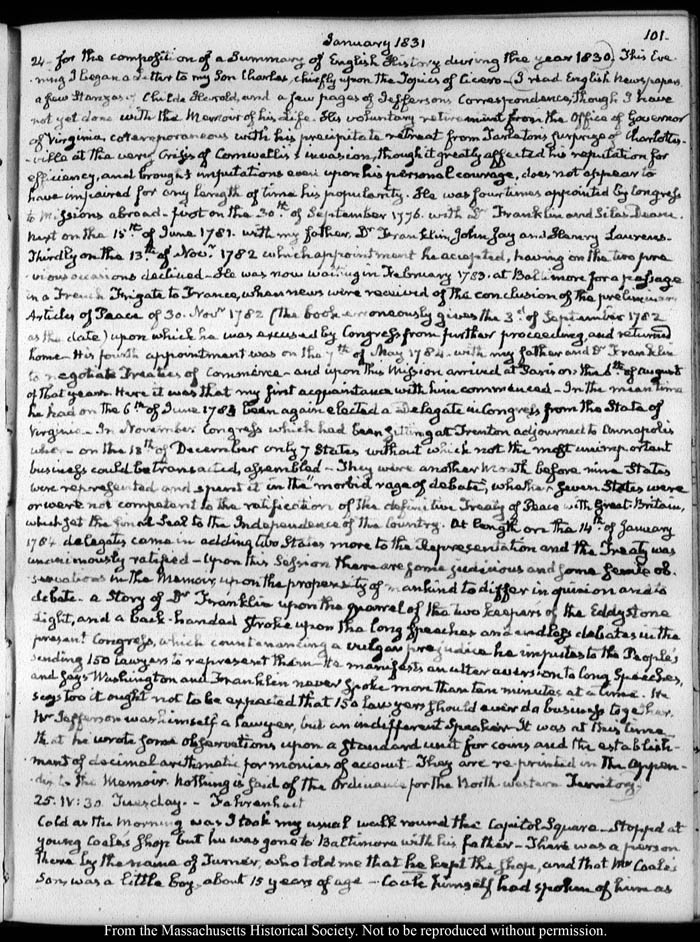 January 1831
101.
24. for the composition of a Summary of English History during the year 1830. This Eve
ning I began a Letter to my Son Charles, chiefly upon the Topics of Cicero— I read English Newspapers
a few Stanzas of Childe Harold, and a few pages of Jeffersons Correspondence, though I have
not yet done with the Memoir of his Life. His voluntary retirement from the Office of Governor
of Virginia, cotemporaneous with his precipitate retreat from Tarleton's surprize of Charlottes-
-ville at the very Crisis of Cornwallis's invasion, though it greatly affected his reputation for
efficiency, and brought imputations even upon his personal courage, does not appear to
have impaired for any length of time his popularity. He was four times appointed by Congress
to Missions abroad— first on the 30th of September 1776. with Dr Franklin and Silas Deane.
next on the 15th of June 1781. with my father, Dr Franklin, John Jay and Henry Laurens—
Thirdly on the 13th of Novr 1782 which appointment he accepted, having on the two pre
vious occasions declined— He was now waiting in February 1783. at Baltimore for a passage
in a French Frigate to France, when news were received of the conclusion of the preliminary
Articles of Peace of 30. Novr 1782 (the book erroneously gives the 3d of September 1782
as the date) upon which he was excused by Congress from further proceeding, and returned
home— His fourth appointment was on the 7th of May 1784. with my father and Dr Franklin
to negotiate Treaties of Commerce— and upon this Mission arrived at Paris on the 6th of August
of that year— Here it was that my first acquaintance with him commenced— In the mean time
he had on the 6th of June 1783 been again elected a Delegate in Congress from the State of
Virginia— In November Congress which had been sitting at Trenton adjourned to Annapolis
where— on the 13th of December only 7 States without which not the most unimportant
business could be transacted, assembled— They were another Month before nine States
were represented and spent it in the "morbid rage of debate", whether seven States were
or were not competent to the ratification of the definitive Treaty of Peace with Great-Britain,
which set the final Seal to the Independence of the Country. At length on the 14th of January
1784 delegates came in adding two States more to the Representation and the Treaty was
unanimously ratified— Upon this Session there are some judicious and some ob-
servations in the Memoir, upon the propensity of mankind to differ in opinion and to
debate— a Story of Dr Franklin upon the quarrel of the two keepers of the Eddystone
Light, and a back-handed stroke upon the long Speeches and endless debates in the
present Congress, which countenancing a vulgar prejudice he imputes to the People's
sending 150 lawyers to represent them— He manifests an utter aversion to long Speeches,
and says Washington and Franklin never spoke more than ten minutes at a time. He
says too it ought not to be expected that 150 lawyers should ever do business together.
Mr Jefferson was himself a lawyer, but an indifferent Speaker— It was at this time
that he wrote some observations upon a standard unit for coins and the establish-
ment of decimal arithmetic for monies of account— They are re-printed in the Appen-
dix to the Memoir. Nothing is said of the Ordinance for the North-western Territory.
25. IV:30. Tuesday.— Fahrenheit
Cold as the Morning was I took my usual walk round the Capitol Square— Stopped at
young Coale's shop but he was gone to Baltimore with his father— There was a person
there by the name of Turner, who told me that he kept the shop, and that Mr Coale's
Son, was a little boy, about 15 years of age— Coale himself had spoken of him as
From the Massachusetts Historical Society. Not to be reproduced without permission.